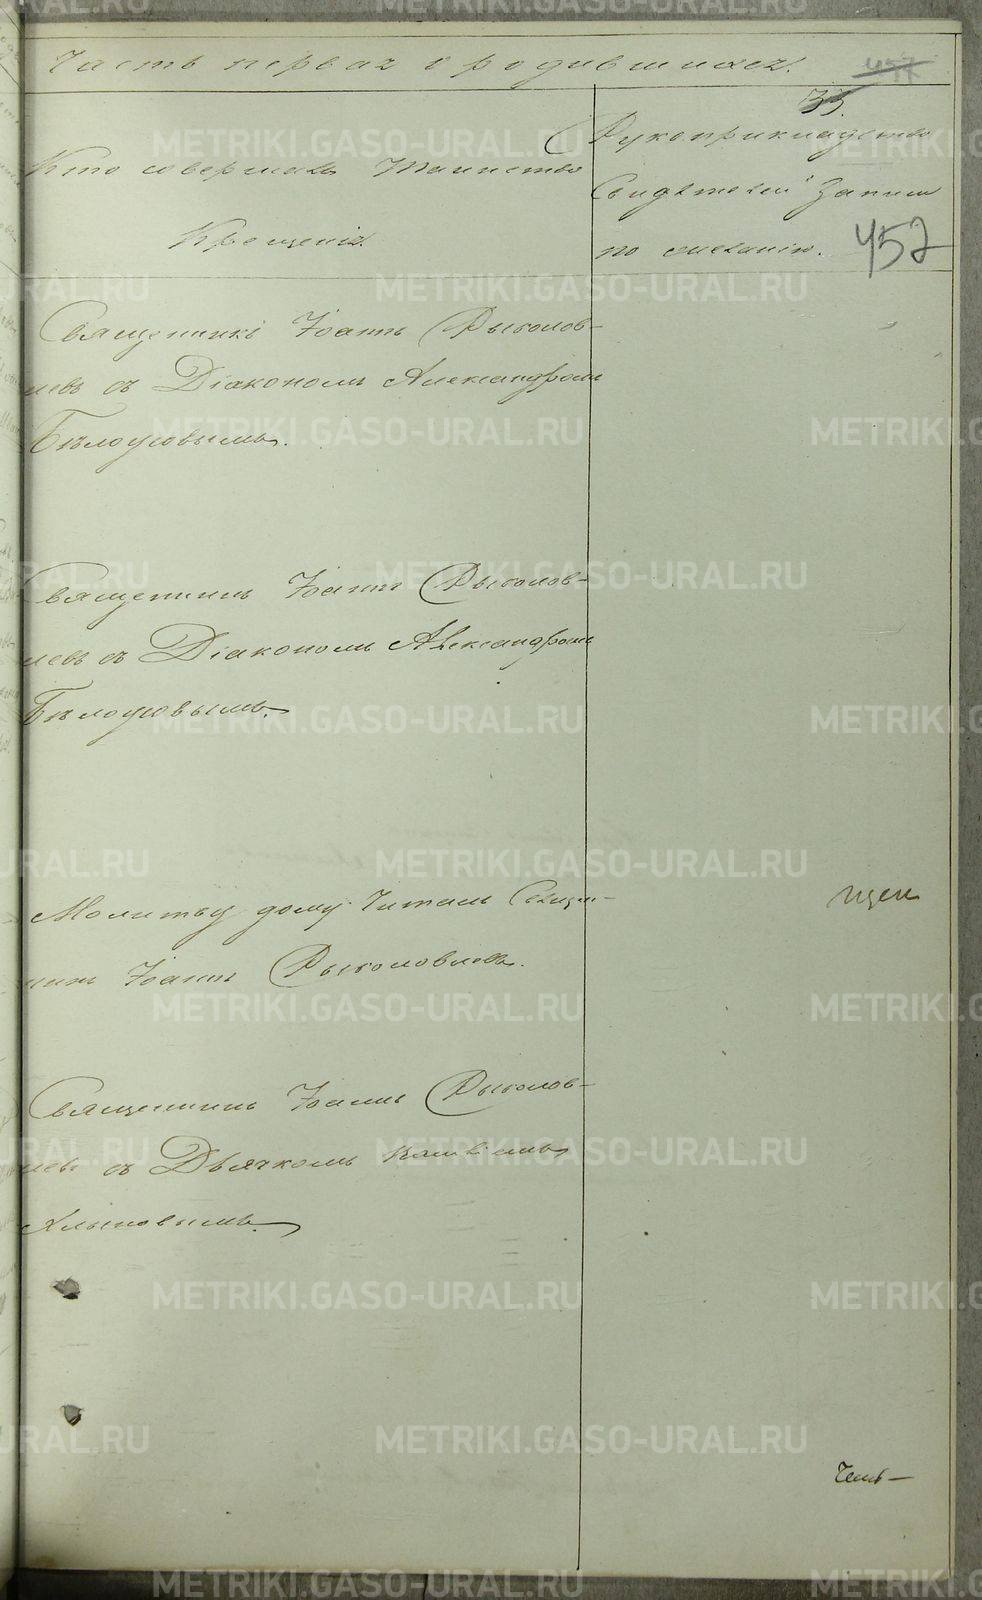 Часть первая о родившихся.
457
33.
Кто совершалъ Таинство
Крещенія.
Рукоприкладство
Свидѣтелей Записи
по желанію.
457
Священникъ Іоаннъ Рыболов-
левъ съ Діакономъ Александромъ
Бѣлоусовымъ.
Священникъ Іоаннъ Рыболов-
левъ съ Діакономъ Александромъ
Бѣлоусовымъ.
Молитву дому Читалъ Священ-
никъ Іоаннъ Рыболовлевъ.
Священникъ Іоаннъ Рыболов-
левъ съ Дьячкомъ
Хлыновымъ.
METRIKI.GASO-URAL.RU